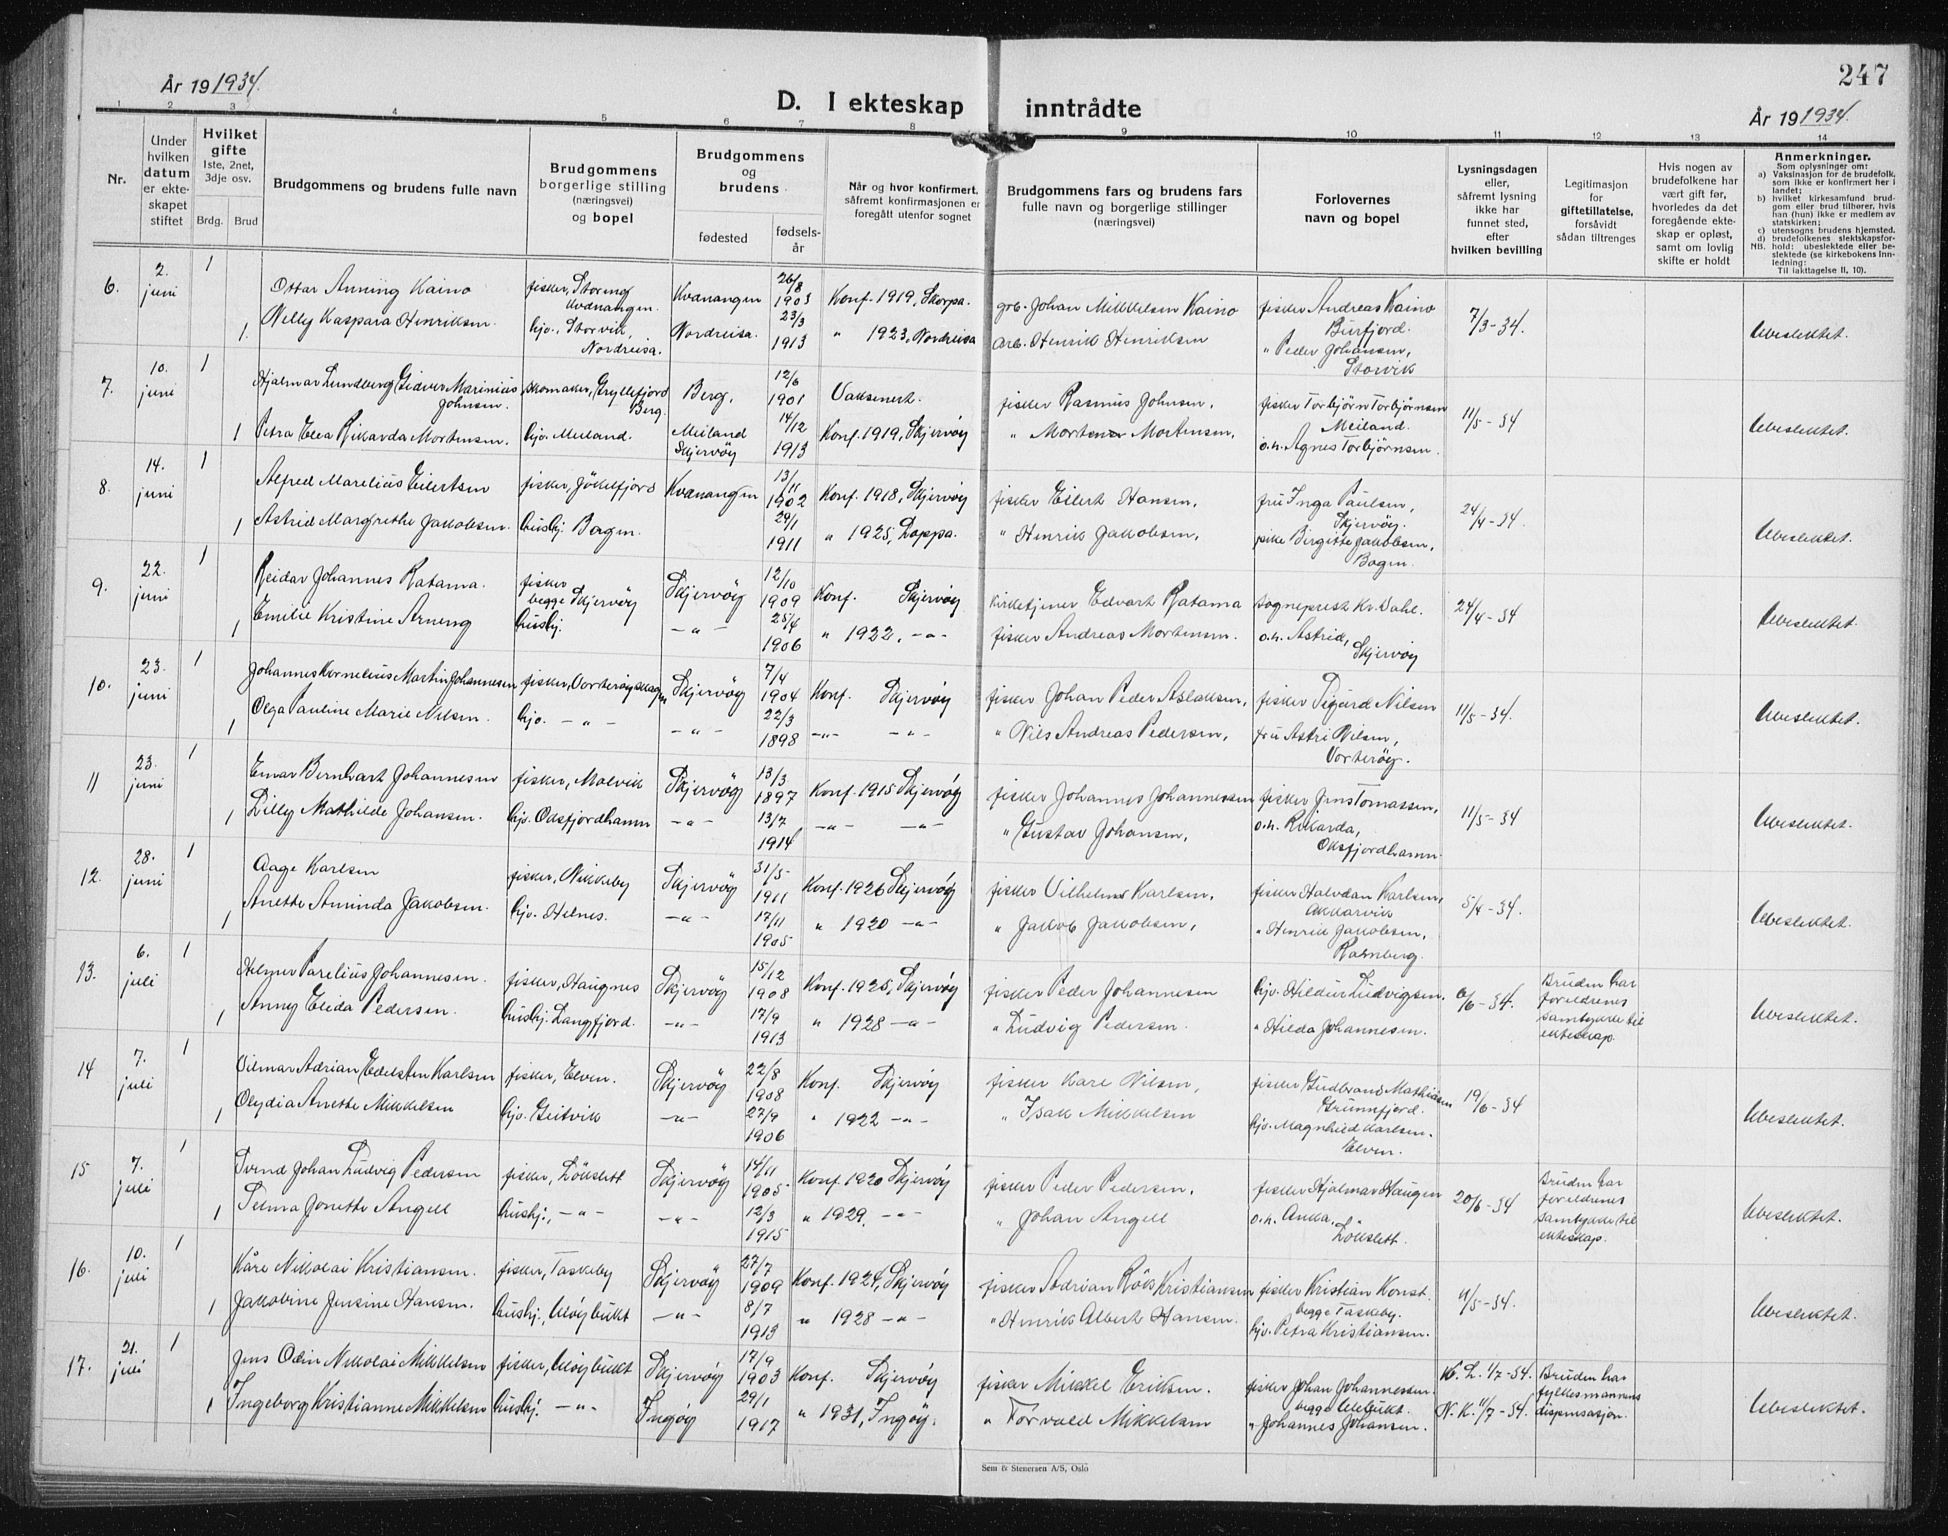 247
År 19 1934.
D. I ekteskap inntrådte
År 19 1934.
1 2 3 4 5 6 7 8 9 10 11 12 13 14
Nr.
Under hvilken datum er ekte-skapet stiftet
Hvilket gifte
1ste, 2net, 3dje osv.
Brdg. Brud
Brudgommens og brudens fulle navn
Brudgommens borgerlige stilling (næringsvei) og bopel
Brudgommens og brudens
fødested
fødsels-år
Når og hvor konfirmert, såfremt konfirmasjonen er foregått utenfor sognet
Brudgommens fars og brudens fars fulle navn og borgerlige stillinger (næringsvei)
Forlovernes navn og bopel
Lysningsdagen eller, såfremt lysning ikke har funnet sted, efter hvilken bevilling
Legitimasjon for giftetillatelse, forsåvidt sådan tiltrenges
Hvis nogen av brudefolkene har vært gift før, hvorledes da det foregående ekte-skap er opløst, samt om lovlig skifte er holdt
Anmerkninger.
Som oplysninger om:
a) Vaksinasjon for de brudefolk, som ikke er konfirmert her i landet;
b) hvilket kirkesamfund brud-gom eller brud tilhører, hvis han (hun) ikke er medlem av statskirken;
c) utensogns brudens hjemsted.
d) brudefolkenes slektskapsfor-
NB. hold: ubeslektede eller be-slektede (se kirkebokens Inn-ledning: Til iakttagelse II, 10).
6. 2. juni 1 Ottar Anning Kaino fisker, Storeng Kvænangen. Kvænangen 26/8 1903 Konf. 1919, Skorpa. grb. Johan Mikkelsen Kaino fisker Andreas Kaino Burfjord. 7/3-34. Ubeslektet.
1 Nelly Kaspara Henriksen. hjv., Storvik, Nordreisa. Nordreisa. 23/3 1913 " 1923, Nordreisa arb. Henrik Henriksen " Peder Johansen, Storvik
7. 10. juni 1 Hjalmar Lundberg Gidver Marinius Johnsen. skomaker, Gryllefjord Berg. Berg, 12/6 1901 Vaksinert. fisker Rasmus Johnsen, fisker Torbjørn Torbjørnsen Meiland. 11/5-34 Ubeslektet.
1 Petra Elea Rikarda Mortensen. hjv. Meiland. Meiland Skjervøy 14/12 1913 Konf. 1919, Skjervøy " Mortenor Mortensen, o.h. Agnes Torbjørnsen.
8. 14. juni 1 Alfred Marelius Eilertsen fisker, Jøkelfjord Kvænangen 13/11 1902 Konf. 1918, Skjervøy fisker Eilert Hansen, fru Inga Paulsen, Skjervøy. 24/4-34. Ubeslektet.
1 Astrid Margrethe Jakobsen. hushj. Bergen. 29/1 1911 " 1925, Loppa. " Henrik Jakobsen, pike Birgitte Jakobsen,
9. 22. juni 1 Reidar Johannes Ratama. fisker begge Skjervøy Skjervøy 12/10 1909 Konf. Skjervøy kirketjener Edvart Ratama sogneprest Kr. Dahl. 24/4-34 Ubeslektet.
1 Emilie Kristine Arneng hushj. -"- 25/4 1906 " 1922, -"- fisker Andreas Mortensen. o.h. Astrid, Skjervøy
10. 23. juni 1 Johannes Kornelius Martin Johannesen fisker, Vorterøyskagen Skjervøy 7/4 1904 Konf. Skjervøy fisker Johan Peder Aslaksen, fisker Sigurd Nilsen 11/5-34. Ubeslektet.
1 Olga Pauline Marie Nilsen. hjv. -"- -"- 22/3 1898 -"- -"- " Nils Andreas Pedersen, fru Astri Nilsen, Vorterøy.
11 23. juni 1 Einar Bernhart Johannesen fisker, Molvik Skjervøy 13/3 1897 Konf. 1915 Skjervøy fisker Johannes Johannessen fisker Jens Tomassen, 11/5-34 Ubeslektet.
1 Lilly Mathilde Johansen. hjv. Oksfjordhamn -"- 13/7 1914 -"- -"- " Gustav Johansen, o.h. Rikarda, Oksfjordhamn.
12. 28. juni 1 Aage Karlsen fisker, Nikkeby Skjervøy 31/5 1911 Konf. 1926 Skjervøy fisker Vilhelmd Karlsen, fisker Halvdan Karlsen, Akkarvik 5/4-34. Ubeslektet.
1 Anette Aminda Jakobsen. hjv. Helnes. -"- 17/11 1905 " 1920 -"- " Jakob Jakobsen, " Henrik Jakobsen,
13. 6. juli 1 Helmer Parelius Johannesen. fisker, Haugnes Skjervøy 15/12 1908 Konf. 1925, Skjervøy fisker Peder Johannesen hjv. Hildur Ludvigsen. 6/6-34. Bruden har foreldrenes samtykke til ekteskap. Ubeslektet.
1 Anny Elida Pedersen. hushj. Langfjord. -"- 17/9 1913 " 1928 -"- " Ludvig Pedersen. " Hilda Johannesen.
14 7. juli 1 Vilmar Adrian Edelsten Karlsen fisker, Elven. Skjervøy 22/8 1908 Konf. Skjervøy fisker Kare Nilsen, fisker Gudbrand Mathiasen Grunnfjord. 19/6-34 Ubeslektet.
1 Olydia Anette Mikkelsen hjv. Geitvik -"- 27/9 1906 " 1922 -"- " Isak Mikkelsen hjv. Magnhild Karlsen. Elven.
15 7. juli 1 Svend Johan Ludvig Pedersen fisker, Løkslett Skjervøy 14/11 1905 Konf. 1920 Skjervøy fisker Peder Pedersen, fisker Hjalmar Haugen 20/6-34 Bruden har foreldrenes samtykke til ekteskap. Ubeslektet.
1 Selma Jonette Angell hushj., -"- -"- 12/3 1915 " 1929, -"- " Johan Angell o.h. Anka, Løkslett.
16. 10. juli 1 Kåre Nikolai Kristiansen. fisker, Taskeby Skjervøy 27/7 1909 Konf. 1924, Skjervøy fisker Adrian Røk Kristiansen fisker Kristian Konst. begge Taskeby. 11/5-34. Ubeslektet.
1 Jakobine Jensine Hansen. hushj., Uløybukt -"- 8/7 1913 " 1928 -"- " Henrik Albert Hansen. hjv. Petra Kristiansen.
17. 21. juli 1 Jens Odin Nikolai Mikkelsen fisker, Uløybukt Skjervøy 17/9 1903 Konf. Skjervøy fisker Mikkel Eriksen. fisker Johan Johannessen. begge Uløbukt. K. L. 1/7-34. Bruden har fylkesmannens dispensasjon. Ubeslektet.
1 Ingeborg Kristianne Mikkelsen hushj. -"- Ingøy 29/1 1917 " 1931, Ingøy. " Torvald Mikkelsen " Johannes Johansen. N. K. 11/7-34.
Sem & Stenersen A/S, Oslo